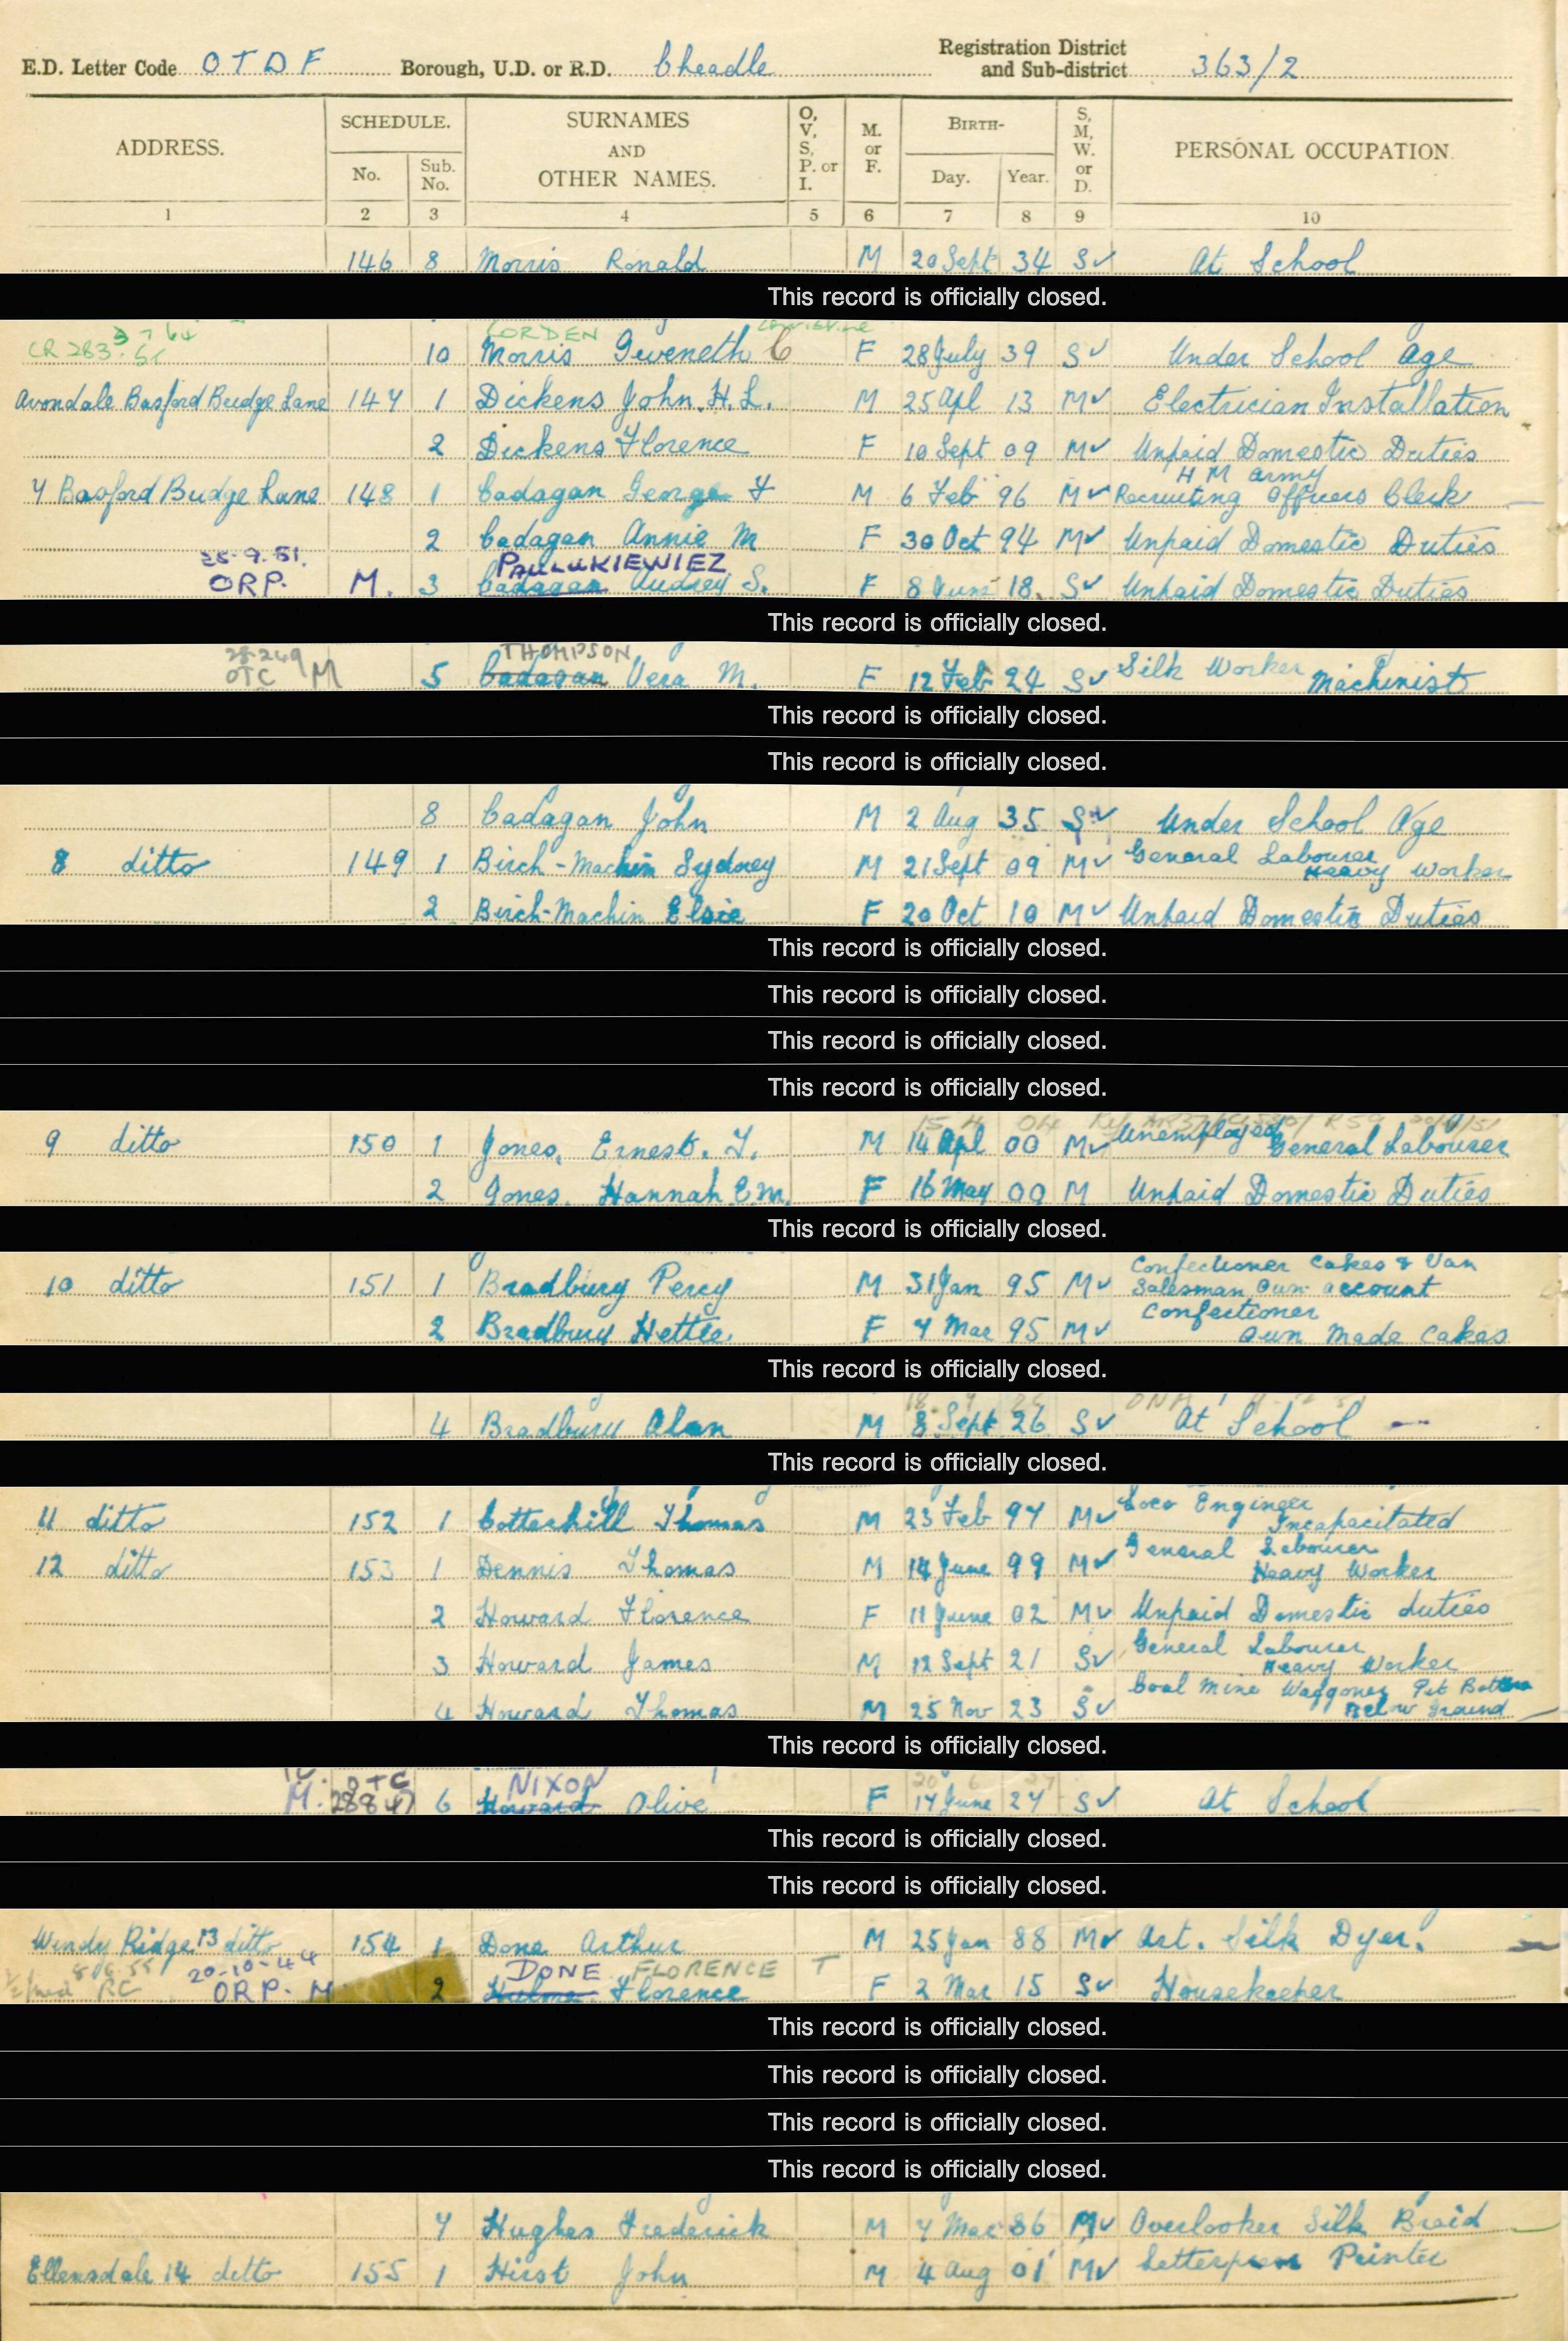 E.D. Letter Code O T D F Borough, U.D. or R.D. Cheadle Registration District and Sub-district 363/2
ADDRESS. SCHEDULE. No. Sub. No. SURNAMES AND OTHER NAMES. O, V, S, P. or I. M. or F. BIRTH- Day. Year. S, M, W. or D. PERSONAL OCCUPATION.
1 2 3 4 5 6 7 8 9 10
146 8 Morris Ronald M 20 Sept 34 S✓ At School
This record is officially closed.
CORDEN
CR 283 10 Morris Gweneth C F 28 July 39 S✓ Under School Age
Avondale Basford Bridge Lane 147 1 Dickens John. H. L. M 25 Apl 13 M✓ Electrician Installation
2 Dickens Florence F 10 Sept 09 M✓ Unpaid Domestic Duties
H M Army
7 Basford Bridge Lane 148 1 Cadagan George F M 6 Feb 96 M✓ Recruiting Officers Clerk
2 Cadagan Annie M F 30 Oct 94 M✓ Unpaid Domestic Duties
25.9.51. PAULUKIEWIEZ
ORP. M. 3 Cadagan Audrey S. F 8 Jun 18. S✓ Unpaid Domestic Duties
This record is officially closed.
THOMPSON
OTC M 5 Cadagan Vera M. F 12 Feb 24 S✓ Silk Worker Machinist
This record is officially closed.
This record is officially closed.
8 Cadagan John M 2 Aug 35 S✓ Under School Age
8 ditto 149 1 Birch-Machin Sydney M 21 Sept 09 M✓ General Labourer Heavy Worker
2 Birch-Machin Elsie F 20 Oct 10 M✓ Unpaid Domestic Duties
This record is officially closed.
This record is officially closed.
This record is officially closed.
This record is officially closed.
15 4 04
9 ditto 150 1 Jones, Ernest. T. M 14 Apl 00 M✓ Unemployed General Labourer
2 Jones, Hannah E.M. F 16 May 00 M Unpaid Domestic Duties
This record is officially closed.
10 ditto 151 1 Bradbury Percy M 31 Jan 95 M✓ Confectioner Cakes & Van Salesman Own account
2 Bradbury Hettie F 7 Mar 95 M✓ Confectioner Own Made Cakes
This record is officially closed.
4 Bradbury Alan M 8 Sept 26 S✓ At School
This record is officially closed.
11 ditto 152 1 Cotterhill Thomas M 23 Feb 97 M✓ Loco Engineer Incapacitated
12 ditto 153 1 Dennis Thomas M 14 June 99 M✓ General Labourer Heavy Worker
2 Howard Florence F 11 June 02 M✓ Unpaid Domestic duties
3 Howard James M 12 Sept 21 S✓ General Labourer Heavy Worker
4 Howard Thomas M 25 Nov 23 S✓ Coal Mine Waggoner Pit Bottom Below Ground
This record is officially closed.
OTC NIXON 20 6 27
M. 28847 6 Howard Olive F 17 June 27 S✓ At School
This record is officially closed.
This record is officially closed.
Windy Ridge 13 ditto 154 1 Done Arthur M 25 Jan 88 M✓ Art. Silk Dyer.
20-10-44 DONE FLORENCE T
RC ORP. M 2 Hulme Florence F 2 Mar 15 S✓ Housekeeper
This record is officially closed.
This record is officially closed.
This record is officially closed.
This record is officially closed.
7 Hughes Frederick M 7 Mar 86 M✓ Overlooker Silk Braid
Ellensdale 14 ditto 155 1 Hirst John M 4 Aug 01 M✓ Letterpress Printer